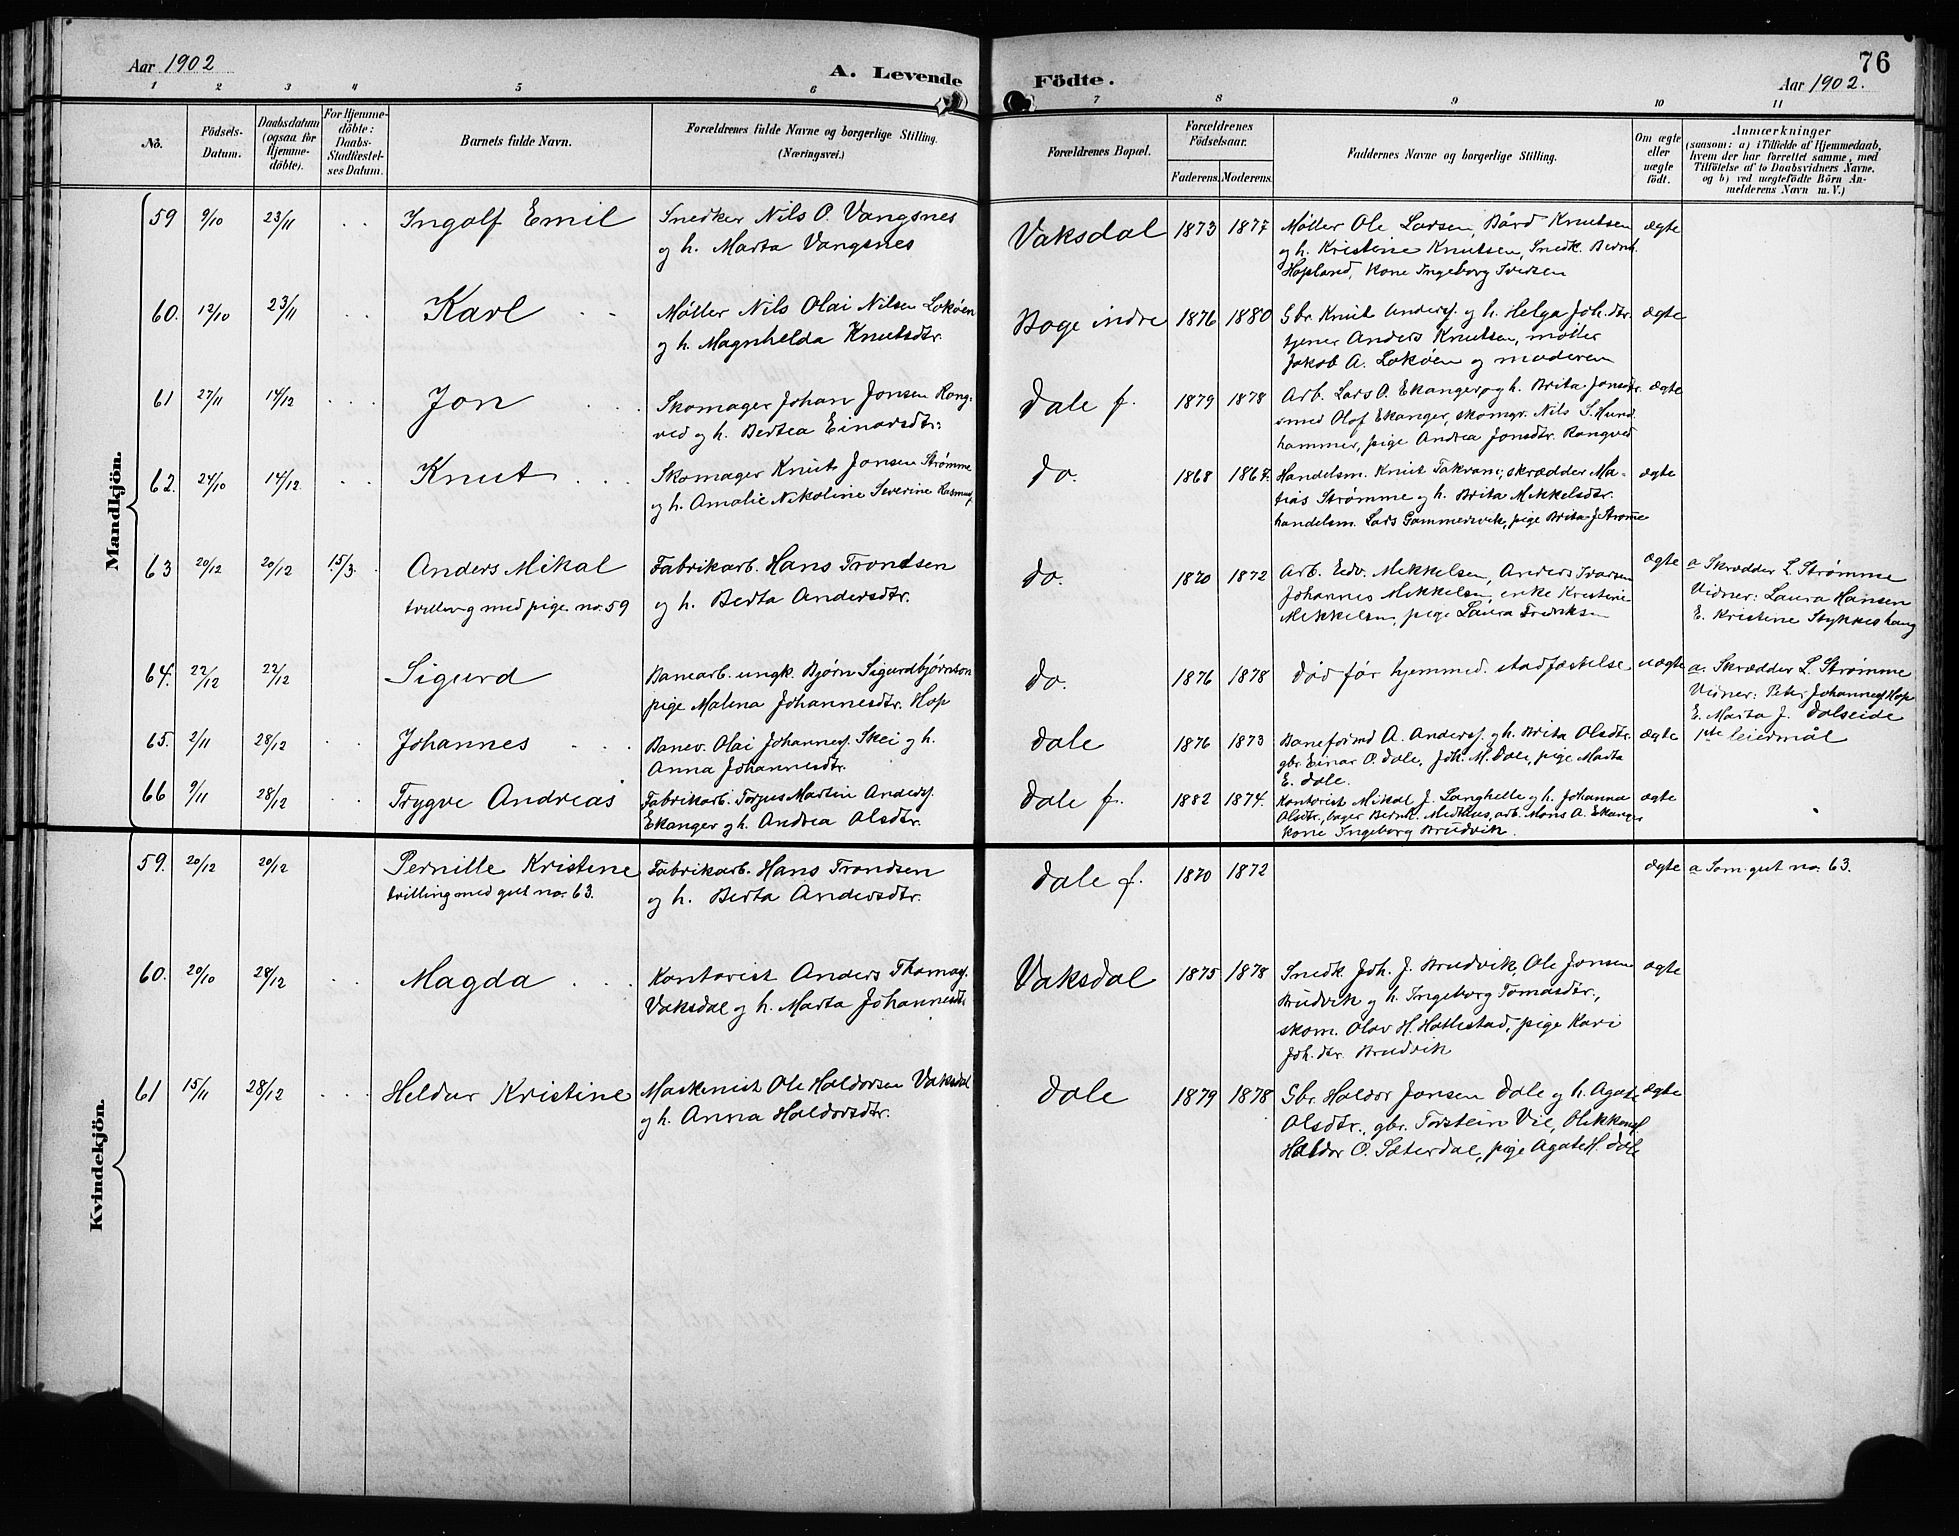 Aar 1902
A. Levende Födte.
76
Aar 1902.
1 2 3 4 5 6 7 8 9 10 11
No.
Födsels-
Datum.
Daabsdatum
(ogsaa for
Hjemme-
döbte).
For Hjemme-
döbte:
Daabs-
Stadfæstel-
ses Datum.
Barnets fulde Navn.
Forældrenes fulde Navne og borgerlige Stilling.
(Næringsvei.)
Forældrenes Bopæl.
Forældrenes
Födselsaar.
Faderens. Moderens.
Faddernes Navne og borgerlige Stilling.
Om ægte
eller
uægte
født.
Anmærkninger
(saasom: a) i Tilfælde af Hjemmedaab,
hvem der har forrettet samme, med
Tilföielse af to Daabsvidners Navne,
og b) ved uægtefödte Börn An-
melderens Navn m. V.)
Mandkjön.
59 9/10 23/11 Ingolf Emil
Snedker Nils O. Vangsnes
og h. Marta Vangsnes
Vaksdal 1873 1877
Møller Ole Larsen, Bård Knutsen
og h. Kristine Knutsen, Snedk. Bernt
Hopland, kone Ingeborg Iversen
ægte
60. 12/10 23/11 Karl
Møller Nils Olai Nilsen Lokøen
og h. Magnhelda Knutsdtr.
Boge indre 1876 1880
Gbr. Knut Anders. og h. Helga Joh.dtr.
tjener Anders Knutsen, møller
Jakob A. Lokøen og moderen
ægte
61 27/11 14/12 Jon
Skomager Johan Jonsen Rong-
ved og h. Bertea Einarsdtr.
Dale f. 1879 1878
Arb. Lars O. Ekanger og h. Brita Jonsdtr.
smed Olaf Ekanger, skomgr. Nils S. Hund
hammer, pige Andrea Jonsdtr. Rongved
ægte
62. 24/10 14/12 Knut
Skomager Knut Jonsen Strømme
og h. Amalie Nikoline Severine Rasmus.
do. 1868 1867.
Handelsm. Knut Takvam, skrædder Ma-
tias Strømme og h. Brita Mikkelsdtr.
handelsm. Lars Gammersvik, pige Brita J. Strømme
ægte
63 20/12 20/12 15/3 Anders Mikal
tvilling med pige no. 59
Fabrikarb. Hans Trondsen
og h. Berta Andersdtr.
do. 1870 1872
Arb. Edv. Mikkelsen, Anders Ivarsen
Johannes Mikkelsen, enke Kristine
Mikkelsen, pige Laura Fredriksen
ægte
a Skrædder L. Strømme
Vidner: Laura Hansen
E. Kristine Stykkeshaug
64. 22/12 22/12 Sigurd
Banearb. ungk. Bjørn Sigurdbjørnson
pige Malena Johannesdtr. Hop
do. 1876 1878
død før hjemmed. stadfæstelse
uægte
a. Skrædder L. Strømme
Vidner: Peter Johannes. Hop
E. Marta J. Dalseide
1ste leiermål
65. 2/11 28/12 Johannes
Banev. Olai Johannes. Skei og h.
Anna Johannesdtr.
Dale 1876 1873
Baneformd A. Anders. og h. Brita Olsdtr.
gbr. Einar O. Dale, Joh. M. Dale, pige Marta
E. Dale.
ægte
66 9/11 28/12 Trygve Andreas
Fabrikarb. Torjus Martin Anders.
Ekanger og h. Andrea Olsdtr.
Dale f. 1882 1874.
Kontorist Mikal J. Langhelle og h. Johanna
Olsdtr., bager Bernh. Medhus, arb. Mons A. Ekanger
kone Ingeborg Brudvik.
ægte
Kvindekjön.
59. 20/12 20/12 Pernille Kristine
tvilling med gut no. 63.
Fabrikarb. Hans Trondsen
og h. Berta Andersdtr.
Dale f. 1870 1872
ægte a Som gut no. 63.
60. 20/10 28/12 Magda
Kontorist Anders Thomas.
Vaksdal og h. Marta Johannesdtr.
Vaksdal 1875 1878
Snedk. Joh. J. Brudvik, Ole Jonsen
Brudvik og h. Ingeborg Tomasdtr.,
skom. Olav H. Hatlestad, pige Kari
Joh.dtr. Brudvik
ægte
61 15/11 28/12 Heldur Kristine
Maskinist Ole Haldorsen Vaksdal
og h. Anna Haldorsdtr.
Dale 1879 1878
Gbr. Haldor Jonsen Dale og h. Agate
Olsdtr., gbr. Torstein Vie,
Haldor O. Sæterdal, pige Agate H. Dale
ægte